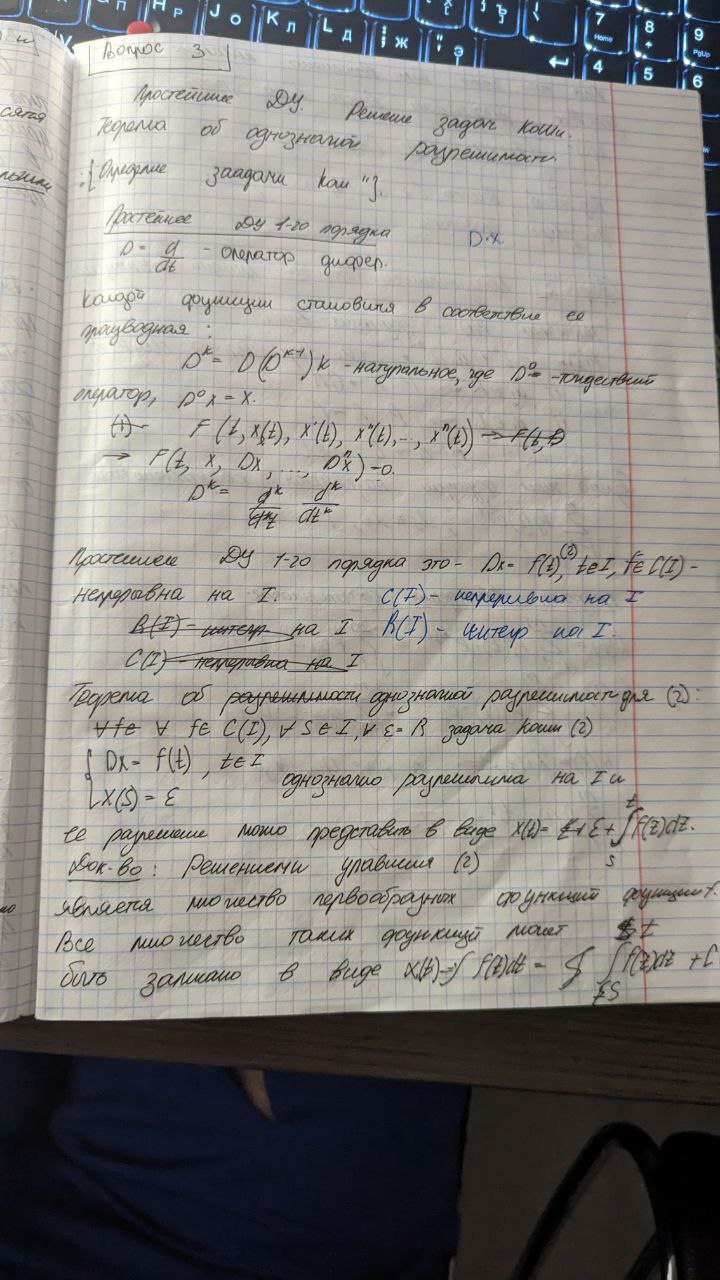 Вопрос 3
Простейшие ДУ. Решение задач Коши.
Теорема об однозначной разрешимости.
[Определение заадачи Коши"].
Простейшее ДУ 1-го порядка
D·x.
D = d/dt - оператор дифер.
Каждой функции становится в соответствие ее
производная :
D^k = D(D^{k-1}) k - натуральное, где D^0 - тождествый
оператор, D^0 x = x.
(1) F(t, x(t), x'(t), x''(t), ..., x^n(t)) → F(t, D
→ F(t, x, Dx, ..., D^n x) = 0.
D^k = d^k/dt^k
Простейшее ДУ 1-го порядка это - Dx = f(t),(2) t∈I, f∈C(I) -
непрерывна на I.
C(I) - непрерывна на I
R(I) - интегр на I
R(I) - интегр на I.
C(I) - непрерывна на I
Теорема об разрешимости однозначной разрешимости для (2):
∀ f∈ ∀ f∈C(I), ∀ S∈I, ∀ ε = R задача Коши (2)
{ Dx = f(t), t∈I
x(S) = ε
однозначно разрешима на I и
ее разрешение можно представить в виде x(t) = ε + ∫_s^t f(τ)dτ.
Док-во: Решениеми уравнения (2)
является множество первообразных функций функции f.
Все множество таких функций может
быть записано в виде x(t) = ∫ f(t)dt = ∫_S^t f(τ)dτ + C
7
Home
8
9
PgUp
4
5
6